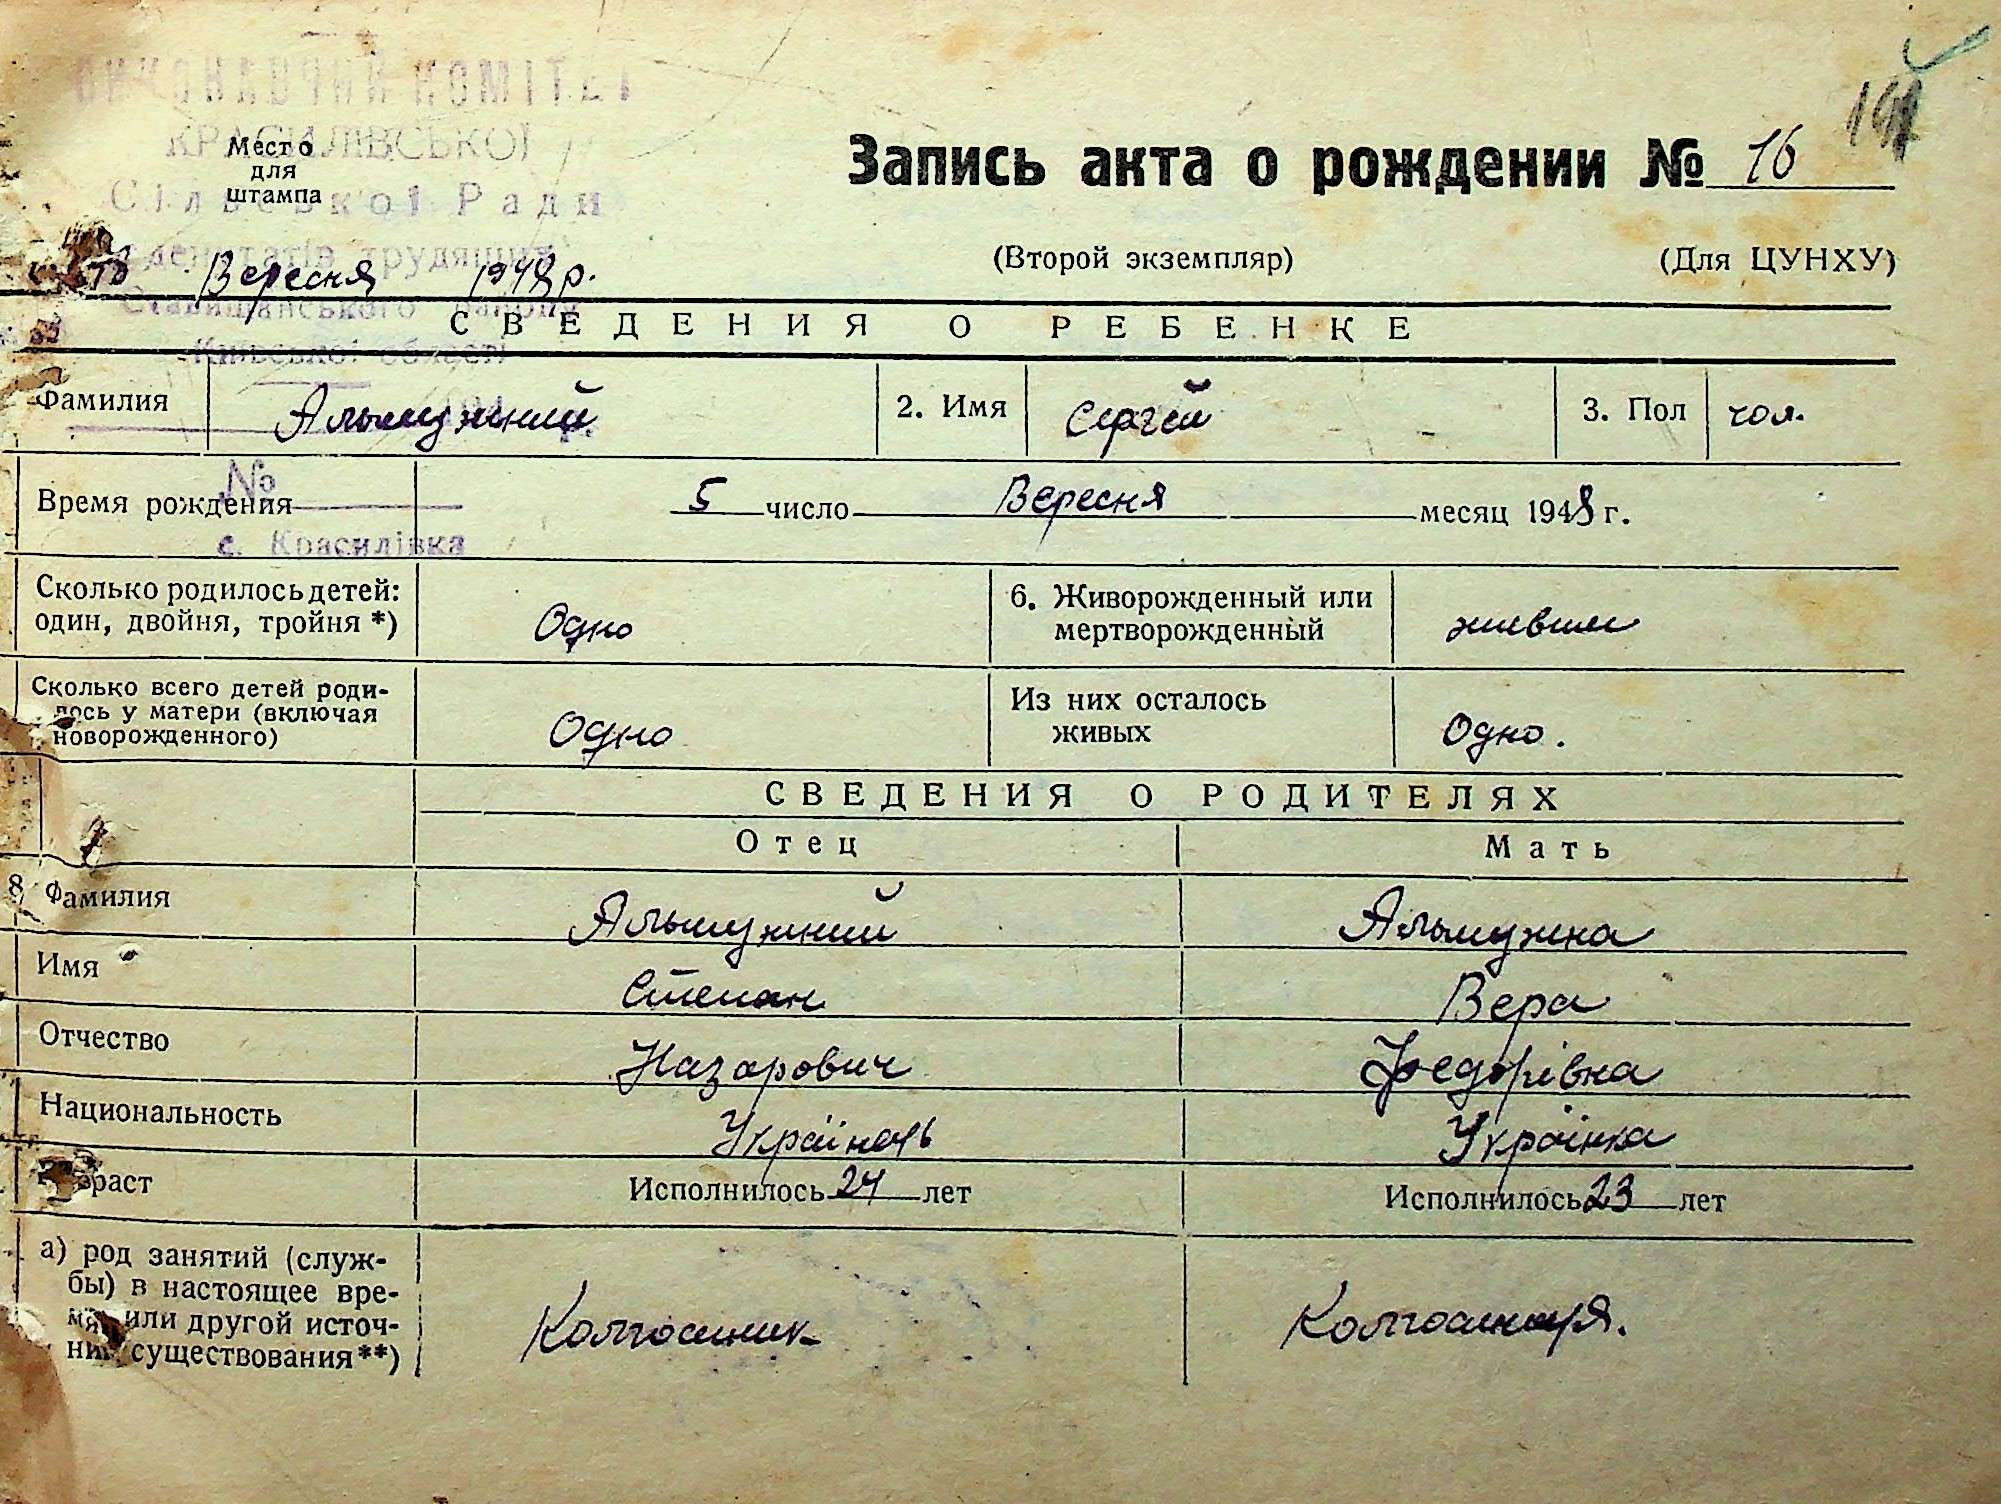 ВИКОНАВЧИЙ КОМІТЕТ
КРАСИЛІВСЬКОЇ
Сільської Ради
депутатів трудящих
Ставищанського району
Київської області
№
с. Красилівка
Место
для
штампа
Запись акта о рождении № 16
Вересня 1948 р.
(Второй экземпляр) (Для ЦУНХУ)
СВЕДЕНИЯ О РЕБЕНКЕ
Фамилия Альмужний 2. Имя Сергей 3. Пол чол.
Время рождения 5 число Вересня месяц 1948 г.
Сколько родилось детей:
один, двойня, тройня *) Одно
6. Живорожденный или
мертворожденный живым
Сколько всего детей роди-
лось у матери (включая
новорожденного) Одно
Из них осталось
живых Одно.
СВЕДЕНИЯ О РОДИТЕЛЯХ
Отец Мать
8 Фамилия Альмужний Альмужна
Имя Степан Вера
Отчество Назарович Федорівна
Национальность Українець Українка
Возраст Исполнилось 24 лет Исполнилось 23 лет
а) род занятий (служ-
бы) в настоящее вре-
мя или другой источ-
ник существования**)
Колгосник Колгосниця.